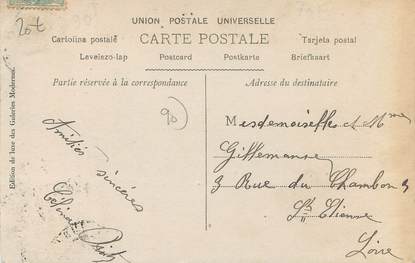 UNION POSTALE UNIVERSELLE
Cartolina postale CARTE POSTALE Tarjeta postal
Levelezo-lap Postcard Postkarte Briefkaart
Partie réservée à la correspondance
Adresse du destinataire
Edition de luxe des Galeries Modernes.
20t
90
Amitiés
sincères
Mesdemoiselles & Mme
3 Rue du Chambon 3
St Etienne
Loire